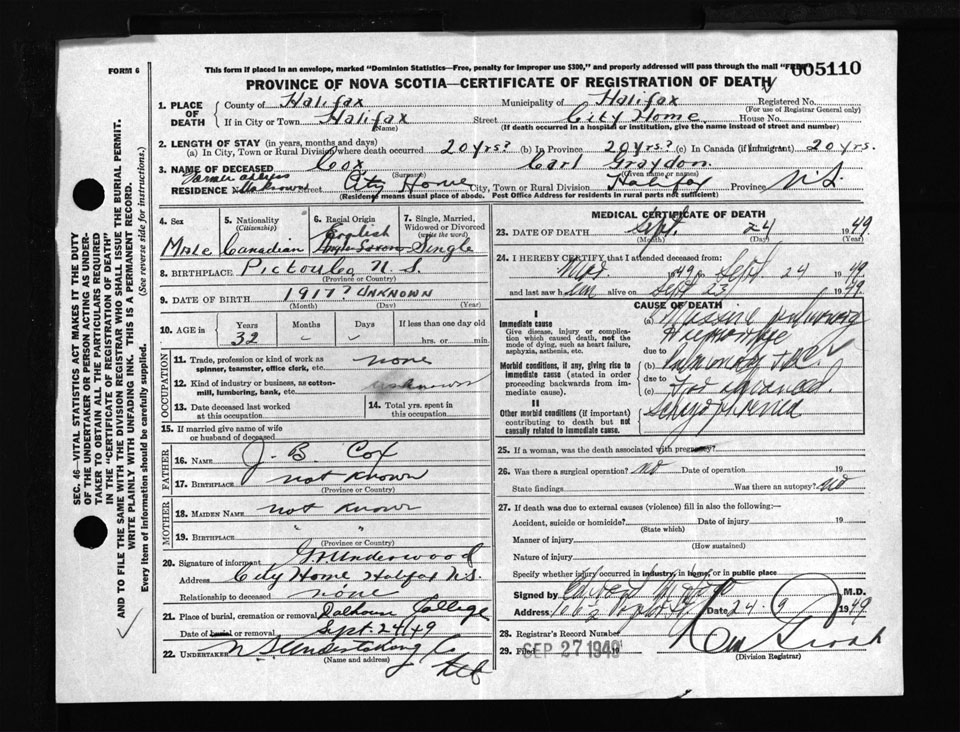 FORM 6
This form if placed in an envelope, marked "Dominion Statistics—Free, penalty for improper use $300," and properly addressed will pass through the mail "FREE"
005110
PROVINCE OF NOVA SCOTIA—CERTIFICATE OF REGISTRATION OF DEATH
1. PLACE OF DEATH
County of Halifax Municipality of Halifax Registered No.
(For use of Registrar General only)
If in City or Town Halifax Street City Home House No.
(Name) (If death occurred in a hospital or institution, give the name instead of street and number)
2. LENGTH OF STAY (in years, months and days)
(a) In City, Town or Rural Division where death occurred 20 yrs? (b) In Province 20 yrs.? (c) In Canada (if immigrant) 20 yrs.
3. NAME OF DECEASED Cox Carl Graydon
(Surname) (Given name or names)
RESIDENCE No. Unknown Street City Home City, Town or Rural Division Halifax Province N.S.
(Residence means usual place of abode. Post Office Address for residents in rural parts not sufficient)
4. Sex Male
5. Nationality (Citizenship) Canadian
6. Racial Origin English
7. Single, Married, Widowed or Divorced (write the word) Single
8. BIRTHPLACE Pictou Co N.S.
(Province or Country)
9. DATE OF BIRTH 1917? Unknown
(Month) (Day) (Year)
10. AGE in Years Months Days If less than one day old
32 - - hrs. or min.
OCCUPATION
11. Trade, profession or kind of work as spinner, teamster, office clerk, etc. none
12. Kind of industry or business, as cotton-mill, lumbering, bank, etc. unknown
13. Date deceased last worked at this occupation
14. Total yrs. spent in this occupation
15. If married give name of wife or husband of deceased
FATHER
16. NAME J. B. Cox
17. BIRTHPLACE not known
(Province or Country)
MOTHER
18. MAIDEN NAME not known
19. BIRTHPLACE " "
(Province or Country)
20. Signature of informant Underwood
Address City Home Halifax N.S.
Relationship to deceased none
21. Place of burial, cremation or removal Dalhousie College
Date of burial or removal Sept. 24/49
22. UNDERTAKER N S Undertaking Co
(Name and address)
MEDICAL CERTIFICATE OF DEATH
23. DATE OF DEATH Sept. 24 1949
(Month) (Day) (Year)
24. I HEREBY CERTIFY that I attended deceased from:
1949 to Sept 24 1949
and last saw him alive on Sept 23 1949.
CAUSE OF DEATH
I
Immediate cause
Give disease, injury or complication which caused death, not the mode of dying, such as heart failure, asphyxia, asthenia, etc.
(a) Massive pulmonary Hemorrhage
due to
Morbid conditions, if any, giving rise to immediate cause (stated in order proceeding backwards from immediate cause).
(b) Pulmonary
due to
(c) Far advanced
II
Other morbid conditions (if important) contributing to death but not causally related to immediate cause.
Schizophrenia
25. If a woman, was the death associated with pregnancy?
26. Was there a surgical operation? no Date of operation 19
State findings Was there an autopsy? no
27. If death was due to external causes (violence) fill in also the following:—
Accident, suicide or homicide? Date of injury 19
(State which)
Manner of injury
(How sustained)
Nature of injury
Specify whether injury occurred in industry, in home, or in public place
Signed by M.D.
Address Date 24-9 1949
28. Registrar's Record Number
29. Filed SEP 27 1949 19
(Division Registrar)
SEC. 46—VITAL STATISTICS ACT MAKES IT THE DUTY OF THE UNDERTAKER OR PERSON ACTING AS UNDERTAKER TO OBTAIN ALL THE PARTICULARS REQUIRED IN THE "CERTIFICATE OF REGISTRATION OF DEATH" AND TO FILE THE SAME WITH THE DIVISION REGISTRAR WHO SHALL ISSUE THE BURIAL PERMIT.
WRITE PLAINLY WITH UNFADING INK. THIS IS A PERMANENT RECORD.
Every item of Information should be carefully supplied. (See reverse side for instructions.)